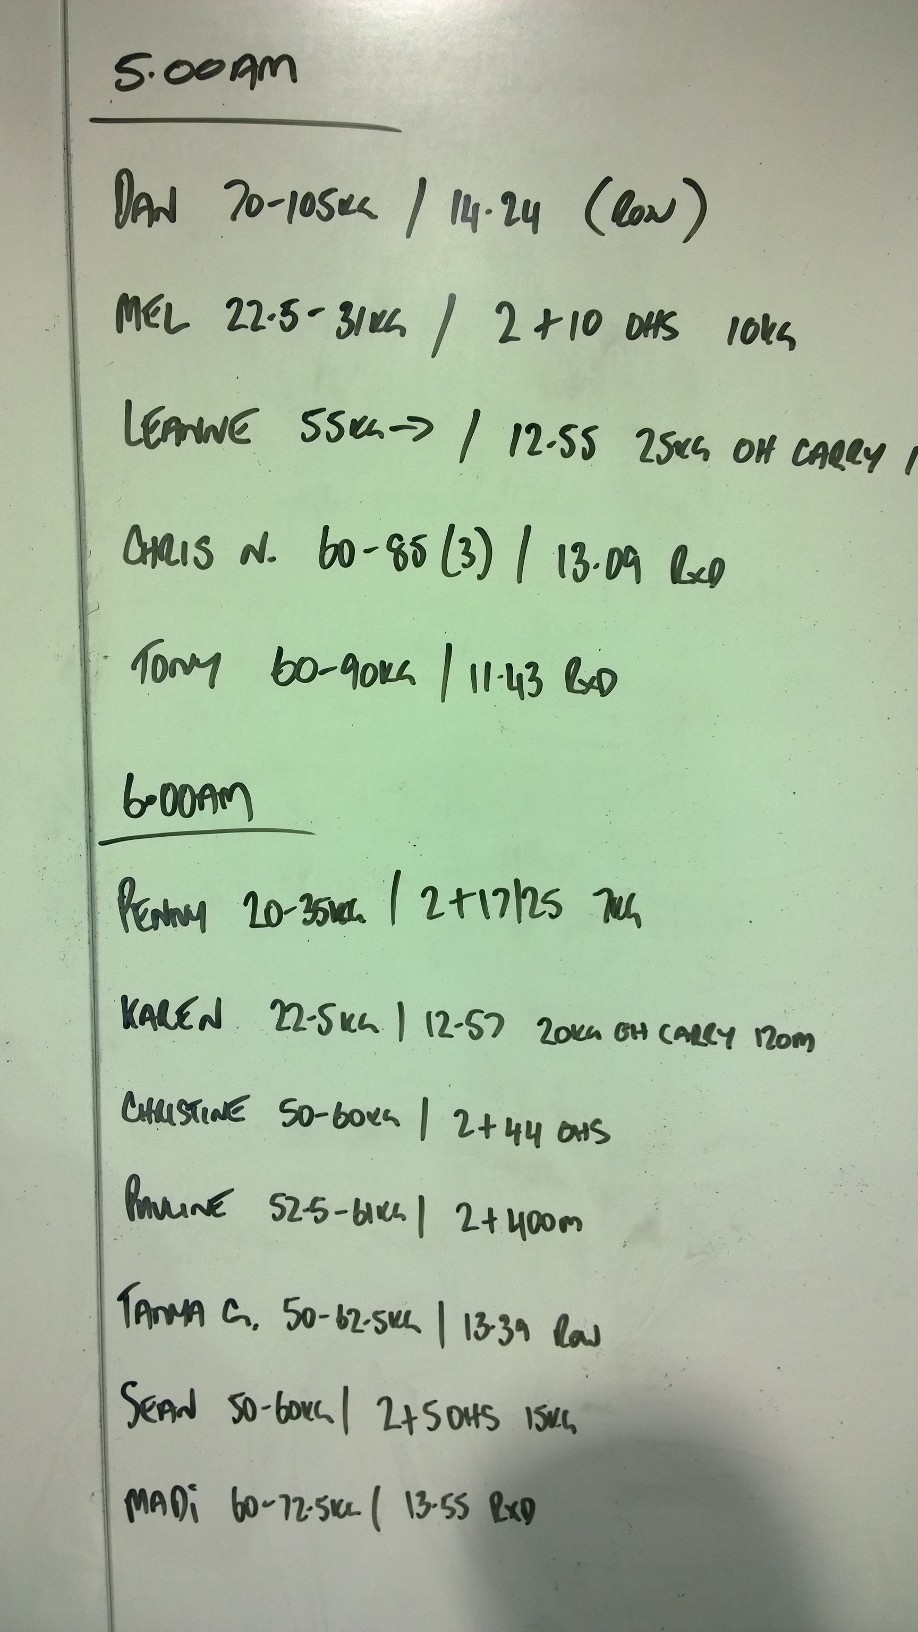 5.00AM
DAN 70-105KG / 14.24 (ROW)
MEL 22.5-31KG / 2+10 OHS 10KG
LEANNE 55KG→ / 12.55 25KG OH CARRY
CHRIS N. 60-85(3) / 13.09 RxD
TONY 60-90KG / 11.43 RxD
6.00AM
PENNY 20-35KG / 2+17/25 7KG
KAREN 22.5KG / 12.57 20KG OH CARRY 120m
CHRISTINE 50-60KG / 2+44 OHS
PAULINE 52.5-61KG / 2+400m
TANYA G. 50-62.5KG / 13.39 ROW
SEAN 50-60KG / 2+5 OHS 15KG
MADi 60-72.5KG / 13.55 RxD